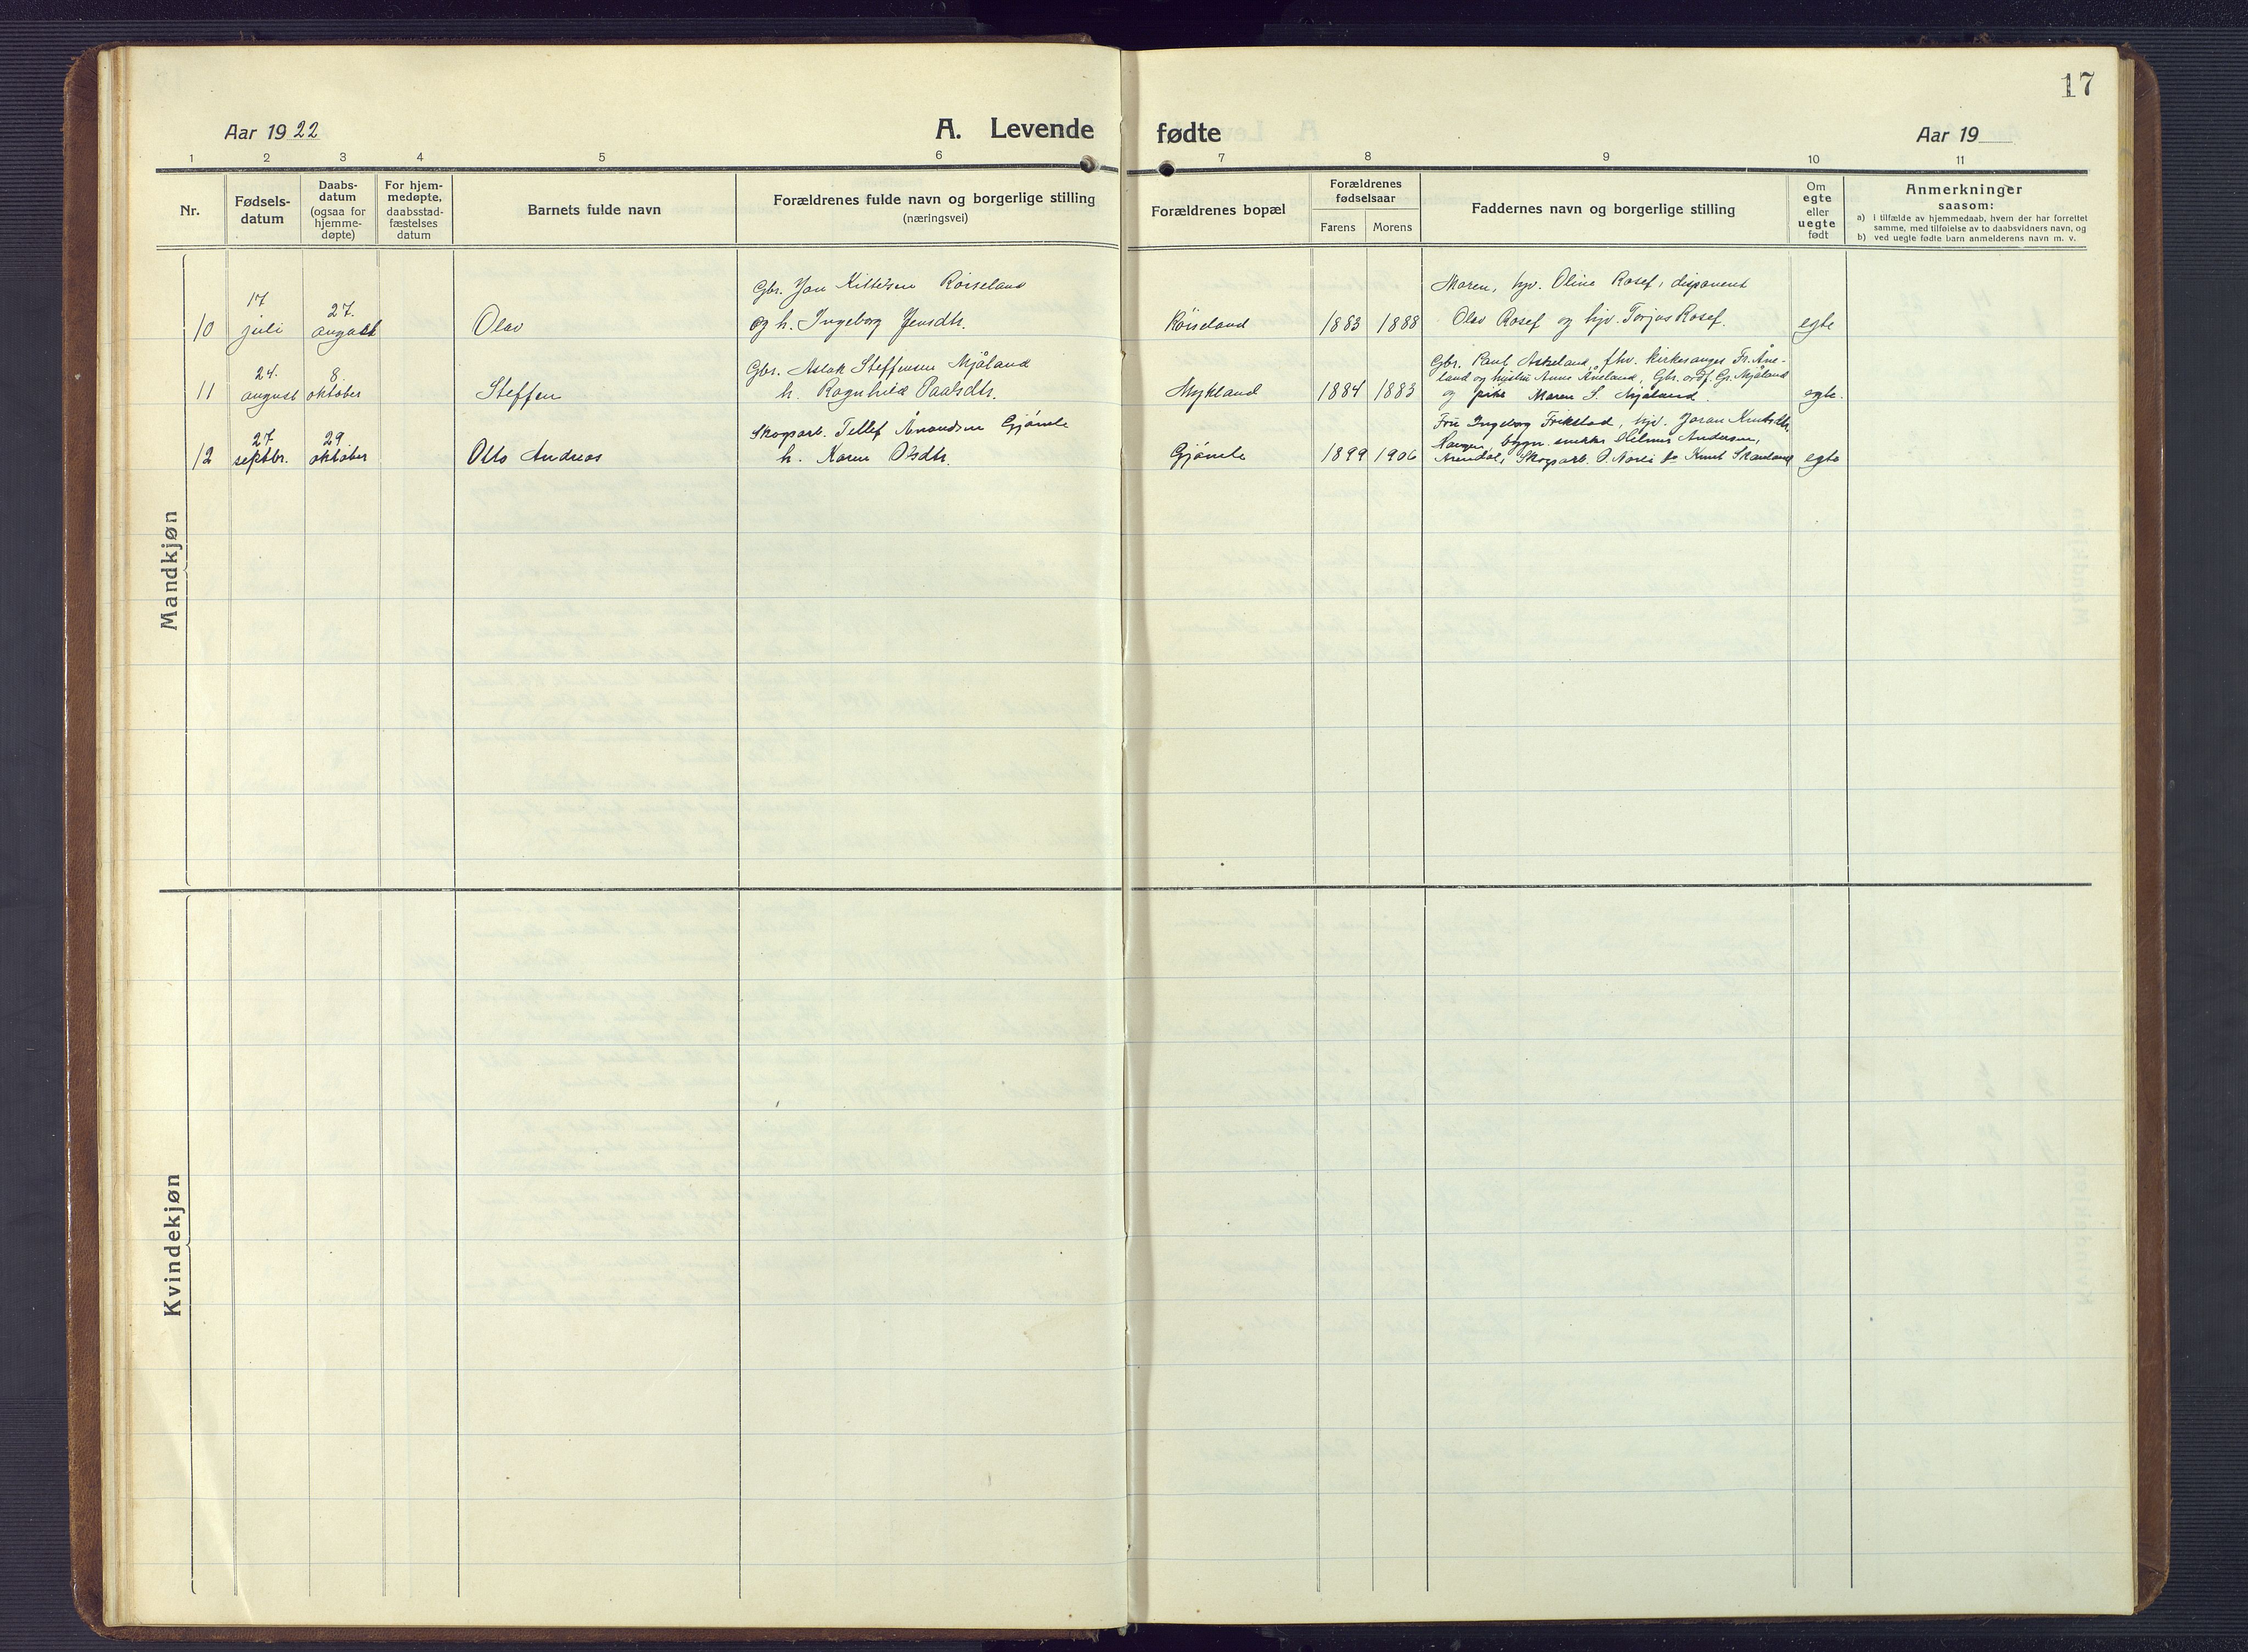 17
Aar 1922
A. Levende fødte
Aar 19
1 2 3 4 5 6 7 8 9 10 11
Nr.
Fødsels-
datum
Daabs-
datum
(ogsaa for
hjemme-
døpte)
For hjem-
medøpte,
daabsstad-
fæstelses
datum
Barnets fulde navn
Forældrenes fulde navn og borgerlige stilling
(næringsvei)
Forældrenes bopæl
Forældrenes
fødselsaar
Farens Morens
Faddernes navn og borgerlige stilling
Om
egte
eller
uegte
født
Anmerkninger
saasom:
a) i tilfælde av hjemmedaab, hvem der har forrettet
samme, med tilføielse av to daabsvidners navn, og
b) ved uegte fødte barn anmelderens navn m. v.
Mandkjøn
17 27. Gbr. Jon Kittelsen Røiseland Maren, hjv. Oline Rosef, disponent
10 juli august Olav og h. Ingeborg Jensdtr. Røiseland 1883 1888 Olav Rosef og hjv. Torjus Rosef. egte
24. 8. Gbr. Aslak Steffensen Mjåland Gbr. Paul Askeland, fhv. kirkesanger Fr. Åne-
land og hustru Anne Åneland, Gbr. ordf. Gr. Mjåland
11 august oktober Steffen h. Ragnhild Paalsdtr. Mykland 1884 1883 og pike Maren S. Mjåland. egte.
27 29 Skogsarb. Tellef Ånondsen Gjømle Fru Ingeborg Frikstad, hjv. Joran Knutsdtr.
Haugen, bygn. snekker Helmer Andersen,
12 septbr. oktober Otto Andreas h. Karen Olsdtr. Gjømle 1899 1906 Arendal, Skogsarb. O. Knut Skanland egte
Kvindekjøn